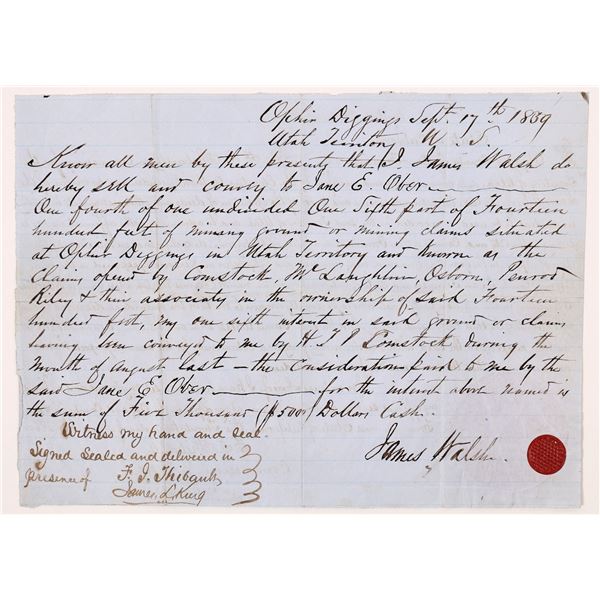 Ophir Diggings Sept. 17th 1859
Utah Territory U. S.
Know all men by these presents that I James Walsh do
hereby sell and convey to Jane E. Ober
One fourth of one undivided One Sixth part of Fourteen
hundred feet of mining ground or mining claims situated
at Ophir Diggings in Utah Territory and known as the
claims opened by Comstock, McLaughlin, Osborn, Penrod
Riley & their associates in the ownership of said Fourteen
hundred feet, my one sixth interest in said ground or claims
having been conveyed to me by H. T. P Comstock during the
month of august last - the consideration paid to me by the
said Jane E Ober for the interest above named is
the sum of Five Thousand ($5000) Dollars Cash.
Witness my hand and seal.
Signed Sealed and delivered in
presence of F. J. Thibault
James L. King
James Walsh.